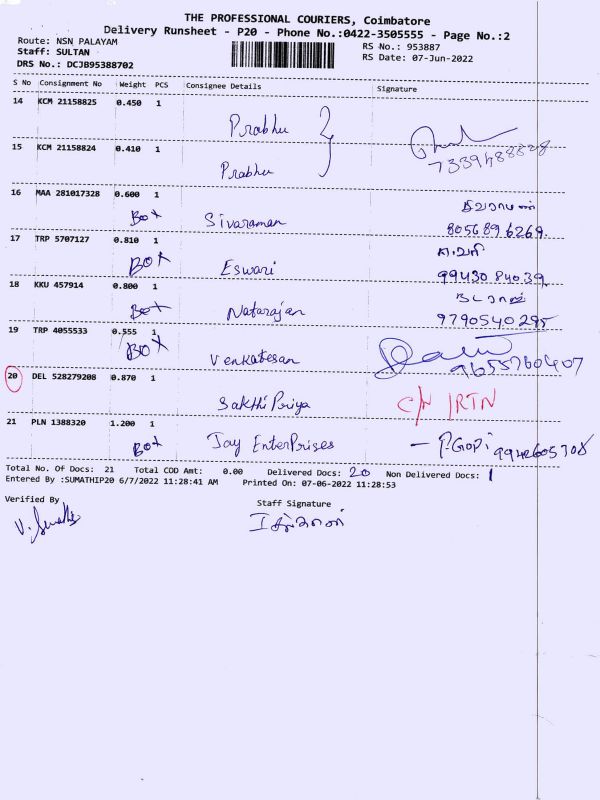 THE PROFESSIONAL COURIERS, Coimbatore
Delivery Runsheet - P20 - Phone No.:0422-3505555 - Page No.:2
Route: NSN PALAYAM
RS No.: 953887
Staff: SULTAN
RS Date: 07-Jun-2022
DRS No.: DCJB95388702
S No Consignment No Weight PCS Consignee Details Signature
14 KCM 21158825 0.450 1
Prabhu
15 KCM 21158824 0.410 1
Prabhu
16 MAA 281017328 0.600 1
Box Sivaraman 8056896269.
17 TRP 5707127 0.810 1
BOX Eswari 9943084039
18 KKU 457914 0.800 1
Box Natarajan 9790540295
19 TRP 4055533 0.555 1
BOX Venkatesan 9655760407
20 DEL 528279208 0.870 1
Sakthi Priya C/N /RTN
21 PLN 1388320 1.200 1
Box Jay EnterPrises - P.Gopi 9942605308
Total No. Of Docs: 21 Total COD Amt: 0.00 Delivered Docs: 20 Non Delivered Docs: 1
Entered By :SUMATHIP20 6/7/2022 11:28:41 AM Printed On: 07-06-2022 11:28:53
Verified By Staff Signature